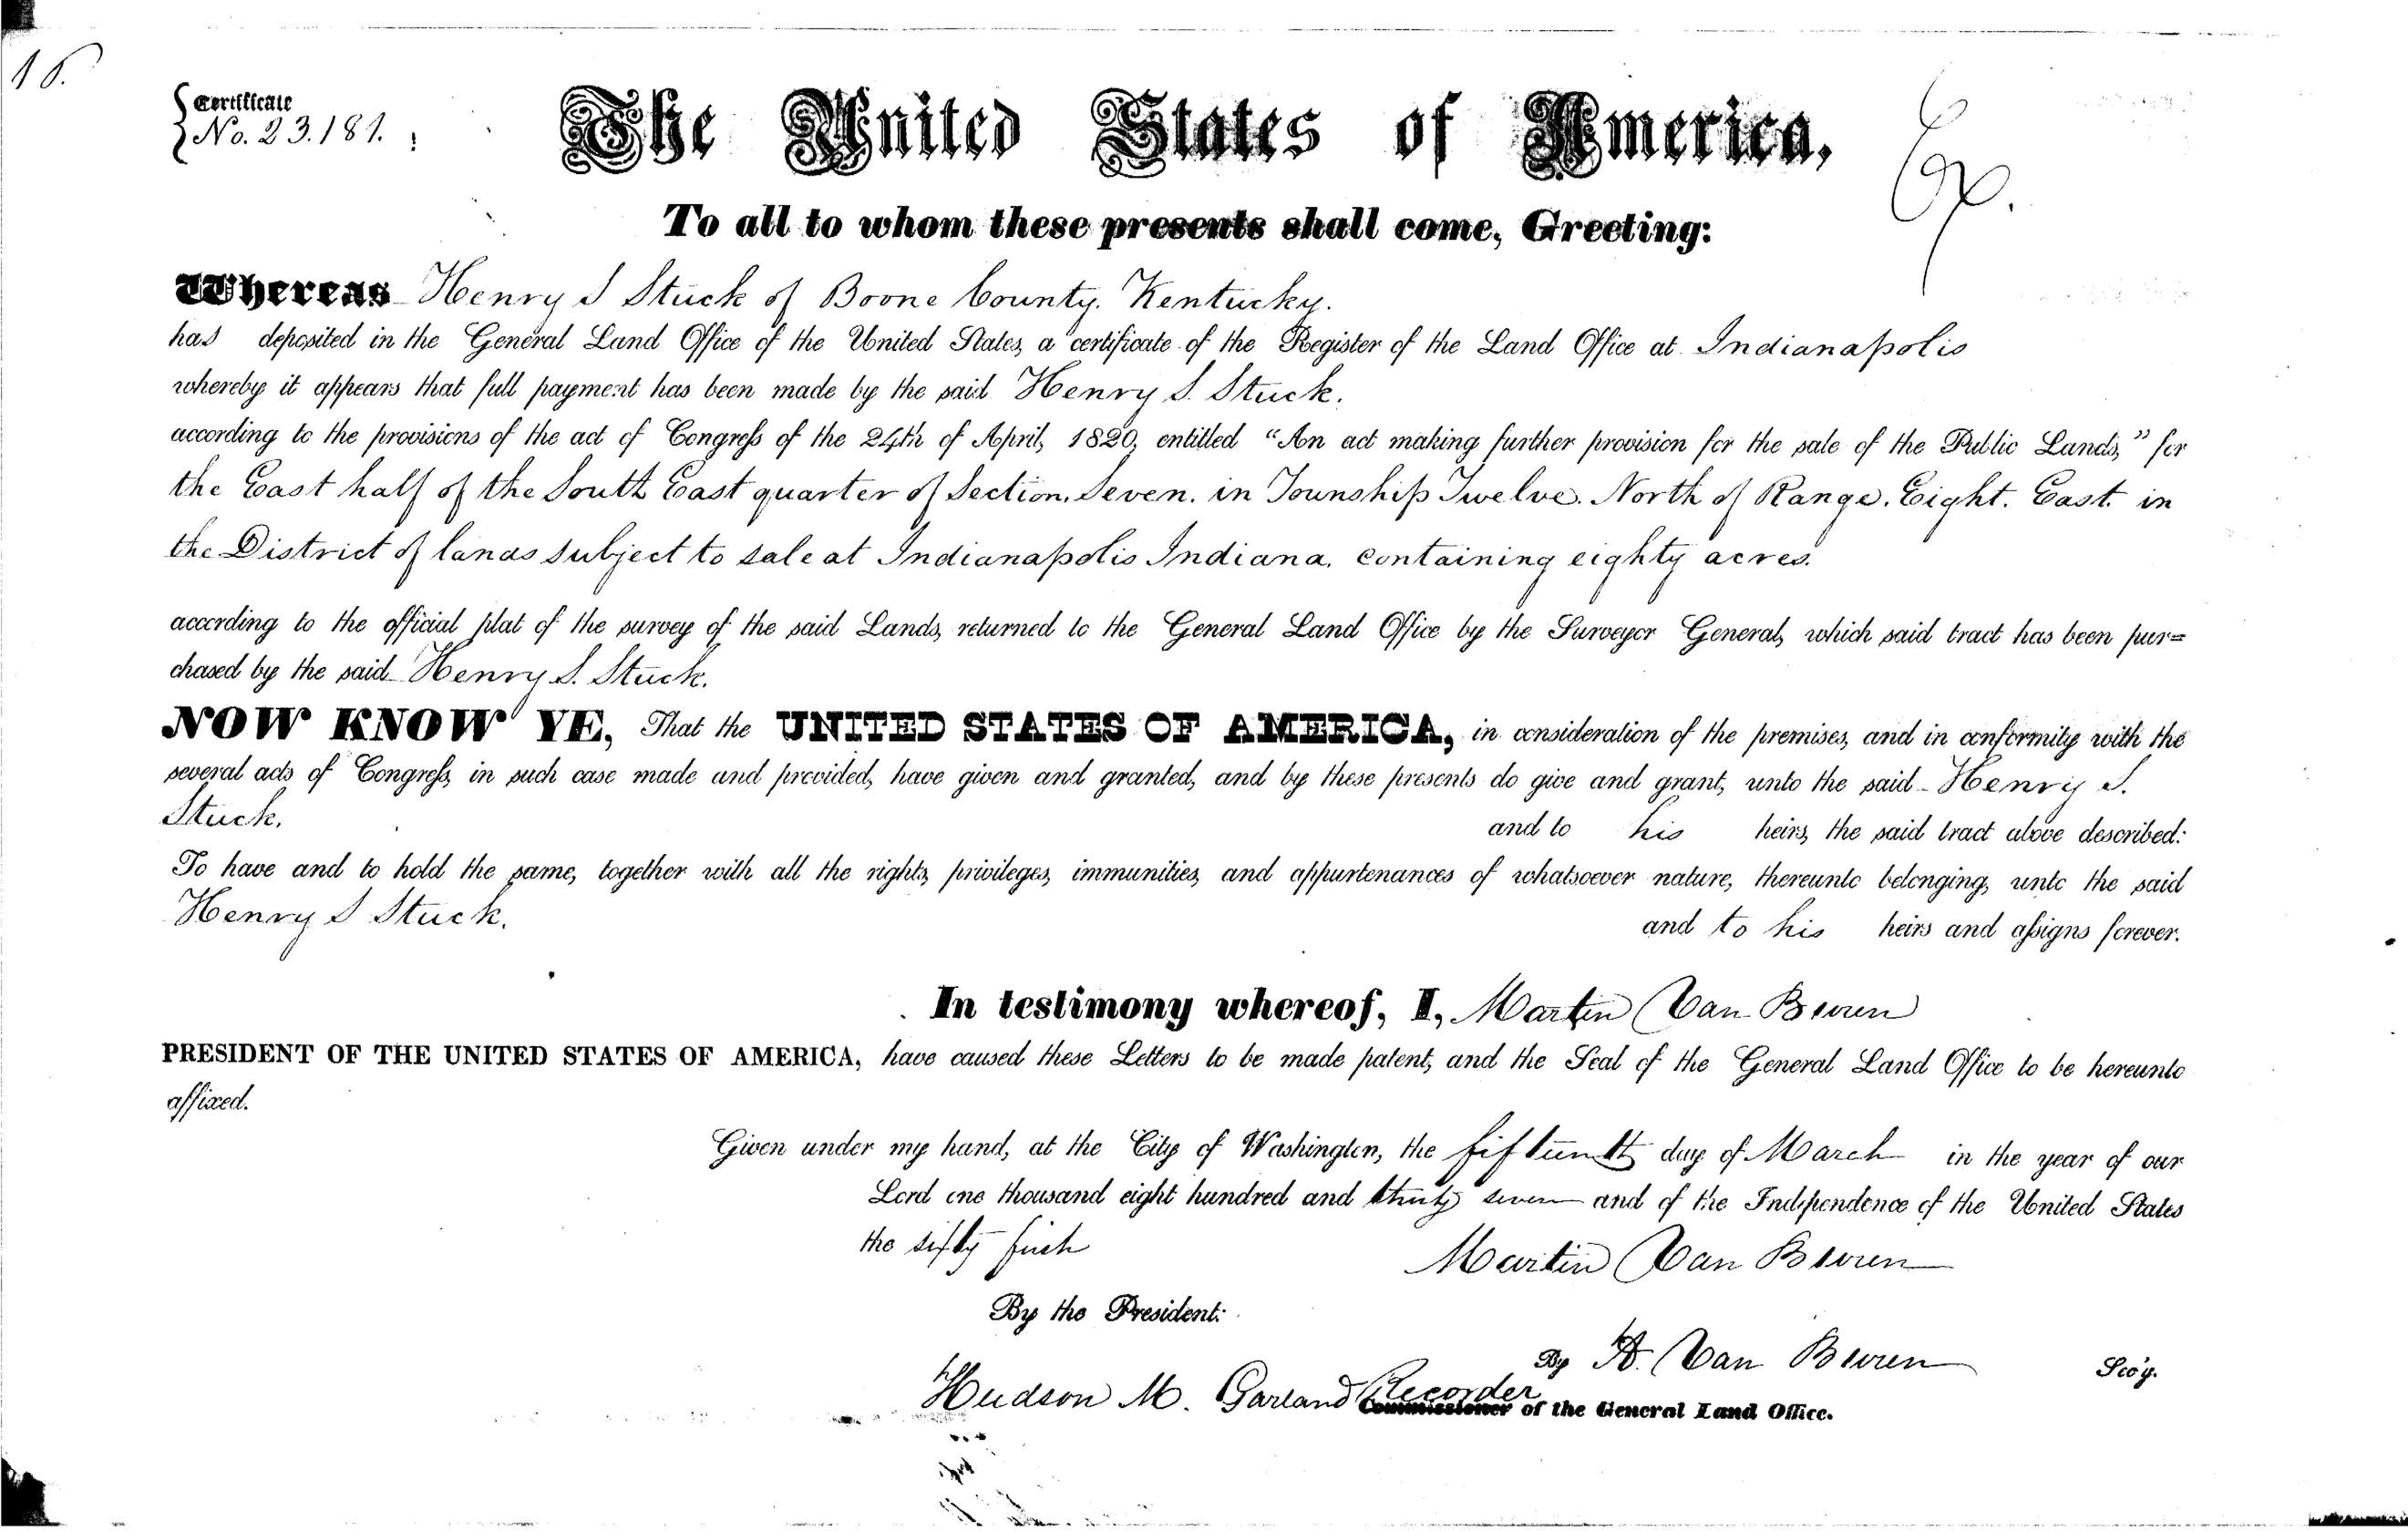 16.
Certificate
No. 23.181.
The United States of America,
To all to whom these presents shall come, Greeting:
Whereas Henry S Stuck of Boone County. Kentucky.
has deposited in the General Land Office of the United States, a certificate of the Register of the Land Office at Indianapolis
whereby it appears that full payment has been made by the said Henry S. Stuck.
according to the provisions of the act of Congress of the 24th of April, 1820, entitled “An act making further provision for the sale of the Public Lands,” for
the East half of the South East quarter of Section. Seven. in Township Twelve. North of Range. Eight. East. in
the District of lands subject to sale at Indianapolis Indiana. containing eighty acres.
according to the official plat of the survey of the said Lands, returned to the General Land Office by the Surveyor General, which said tract has been pur=
chased by the said Henry S. Stuck.
NOW KNOW YE, That the UNITED STATES OF AMERICA, in consideration of the premises, and in conformity with the
several acts of Congress, in such case made and provided, have given and granted, and by these presents do give and grant, unto the said Henry S.
Stuck. and to his heirs, the said tract above described:
To have and to hold the same, together with all the rights, privileges, immunities, and appurtenances of whatsoever nature, thereunto belonging, unto the said
Henry S Stuck. and to his heirs and assigns forever.
In testimony whereof, I, Martin Van Buren
PRESIDENT OF THE UNITED STATES OF AMERICA, have caused these Letters to be made patent, and the Seal of the General Land Office to be hereunto
affixed.
Given under my hand, at the City of Washington, the fifteenth day of March in the year of our
Lord one thousand eight hundred and thirty seven and of the Independence of the United States
the sixty first
Martin Van Buren
By the President:
By A. Van Buren Sec'y.
Hudson M. Garland Recorder
Commissioner of the General Land Office.